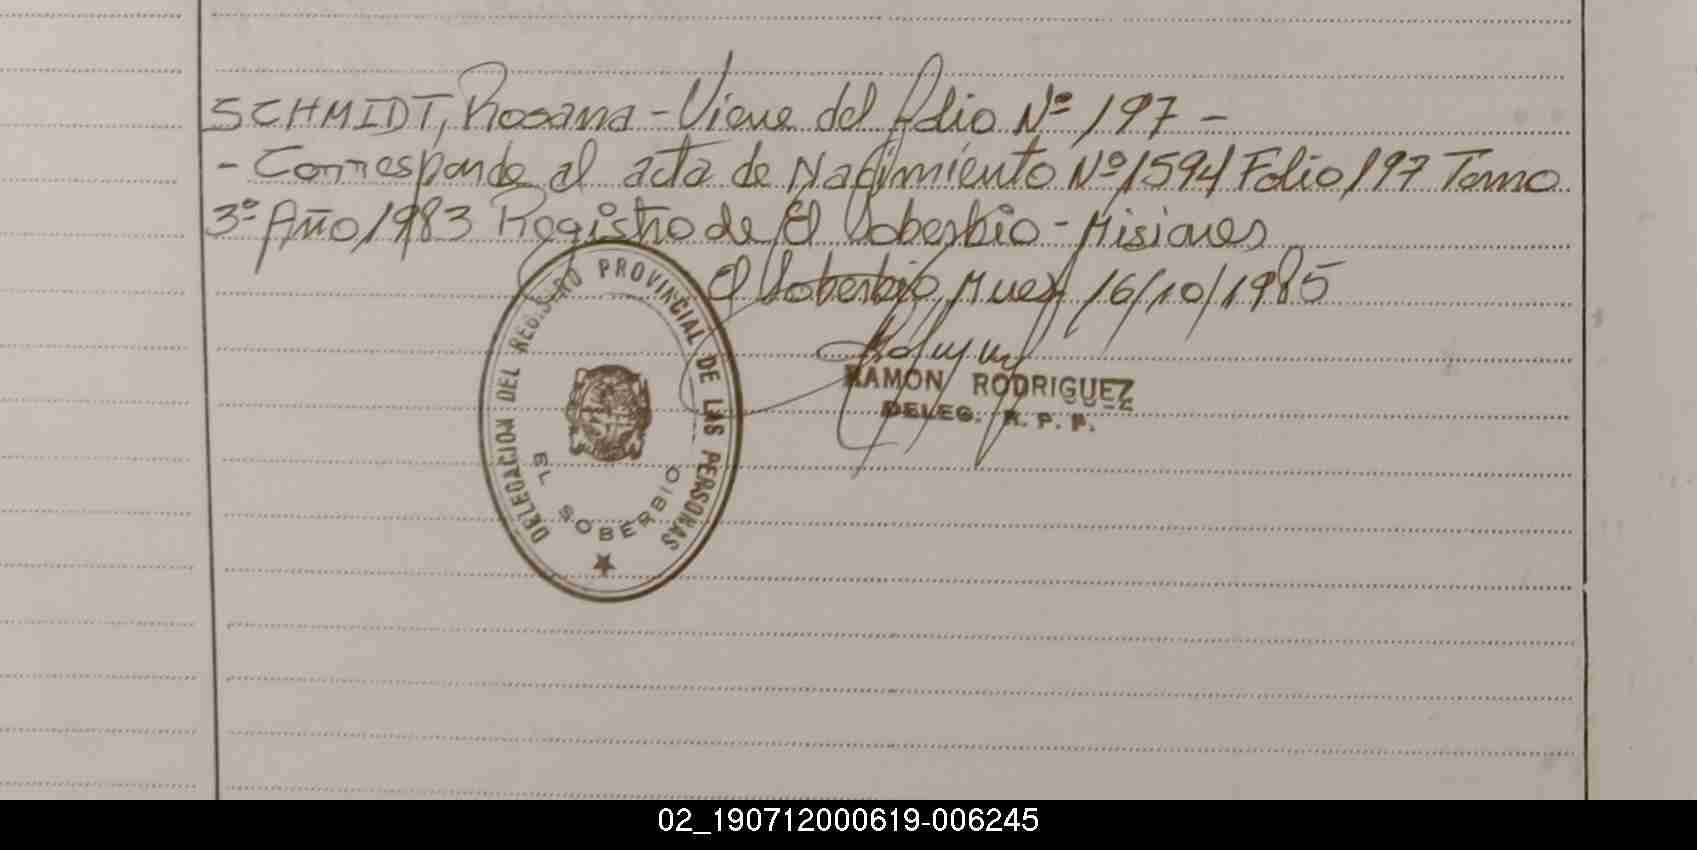 SCHMIDT, Rosana - Viene del folio Nº 197 -
- Corresponde al acta de Nacimiento Nº 1594 Folio 197 Tomo
3º Año 1983 Registro de El Soberbio - Misiones
El Soberbio, Mnes, 16/10/1985
DELEGACION DEL REGISTRO PROVINCIAL DE LAS PERSONAS
EL SOBERBIO
RAMON RODRIGUEZ
DELEG. R. P. P.
02_190712000619-006245